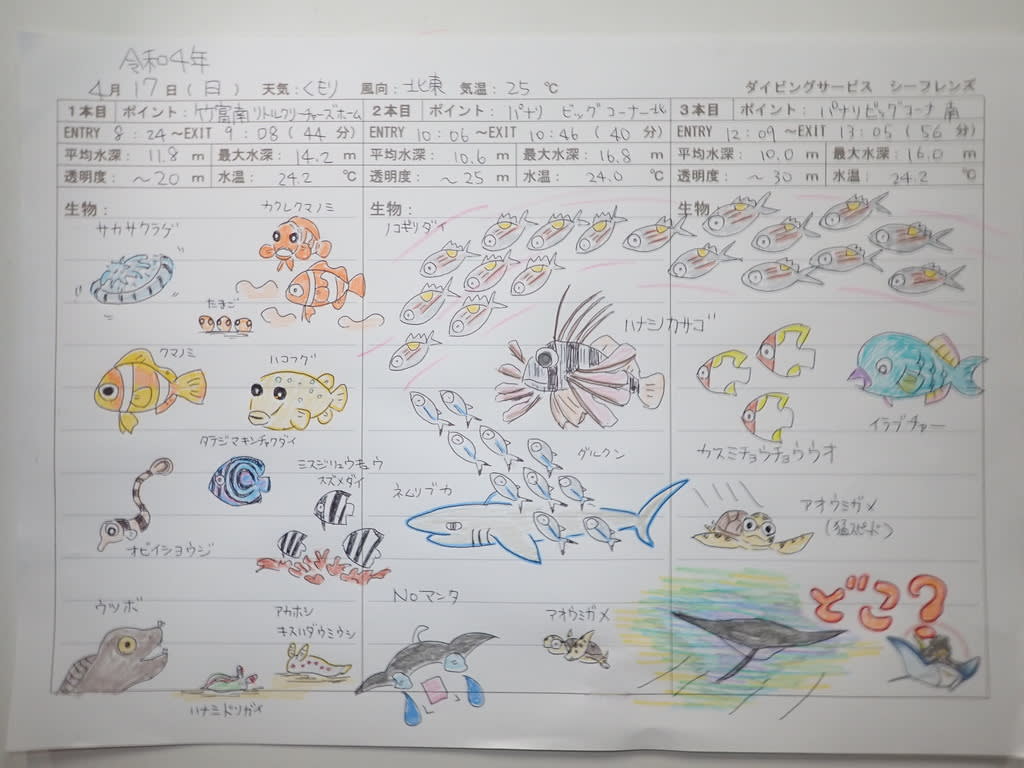 令和4年
4月 17日(日) 天気:くもり 風向:北東 気温:25 ℃ ダイビングサービス シーフレンズ
1本目 ポイント:竹富南リトルクリーチャーズホーム
ENTRY 8:24〜EXIT 9:08(44分)
平均水深:11.8 m 最大水深:14.2 m
透明度:〜20 m 水温:24.2 ℃
生物:
サカサクラゲ
カクレクマノミ
たまご
クマノミ
ハコフグ
タテジマキンチャクダイ
ミスジリュウキュウ
スズメダイ
オビイシヨウジ
ウツボ
アカホシ
キスハダウミウシ
ハナミドリガイ
2本目 ポイント:パナリ ビッグコーナー北
ENTRY 10:06〜EXIT 10:46(40分)
平均水深:10.6 m 最大水深:16.8 m
透明度:〜25 m 水温:24.0 ℃
生物:
ノコギリダイ
ハナミノカサゴ
グルクン
ネムリブカ
Noマンタ
アオウミガメ
3本目 ポイント:パナリビッグコーナー南
ENTRY 12:09〜EXIT 13:05(56分)
平均水深:10.0 m 最大水深:16.0 m
透明度:〜30 m 水温:24.2 ℃
生物
イラブチャー
カスミチョウチョウウオ
アオウミガメ
(猛スピード)
どこ?